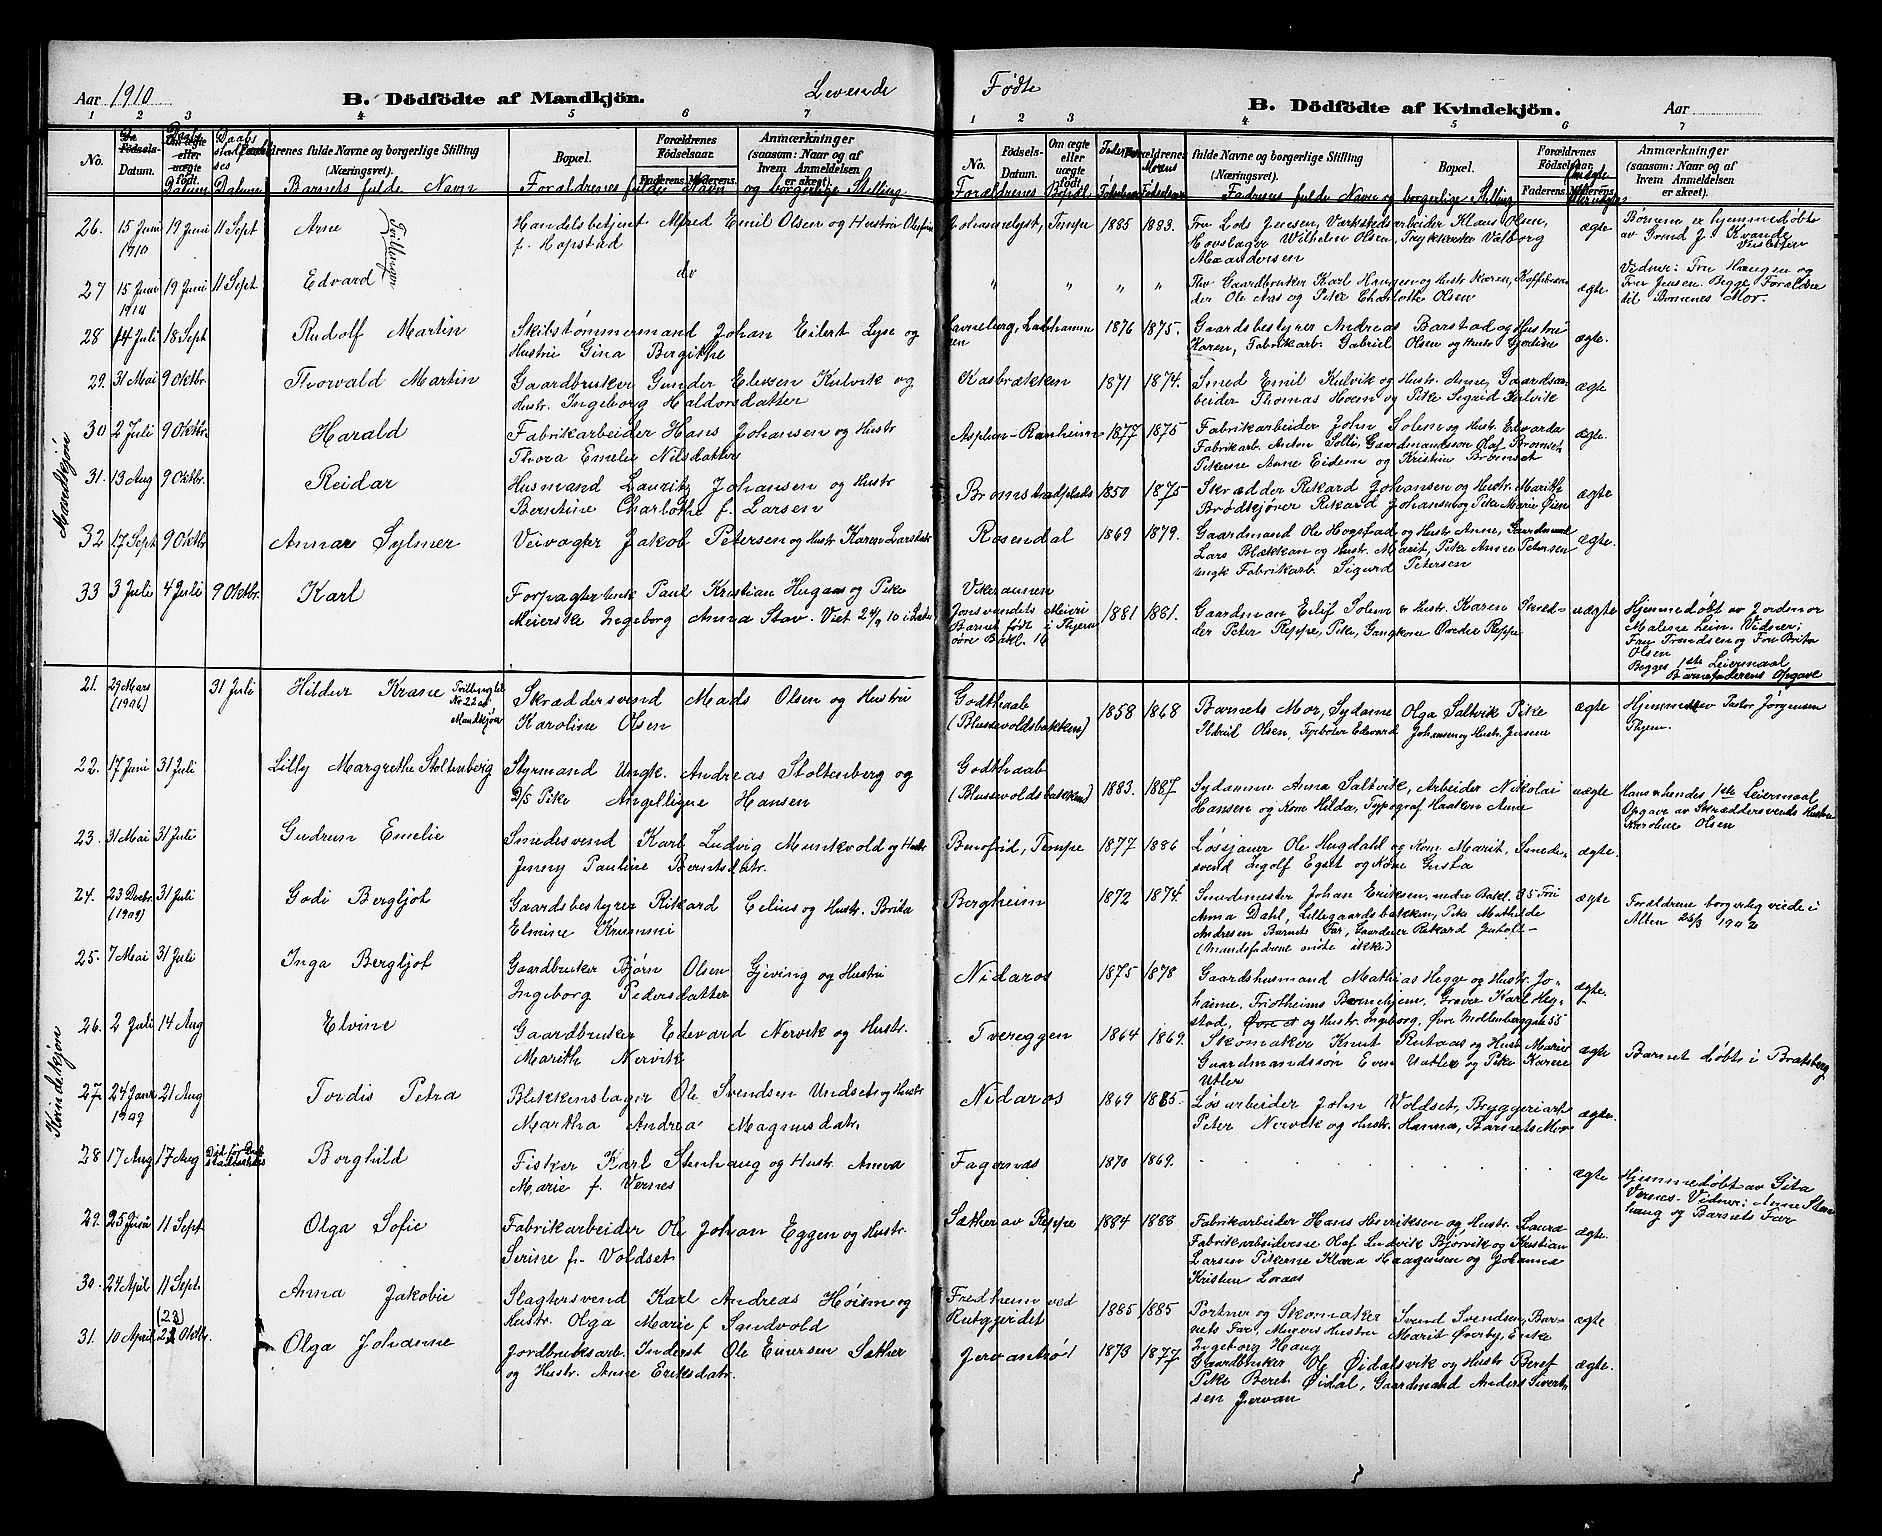 Aar 1910
B. Dödfödte af Mandkjön.
Levende
Födte
B. Dödfödte af Kvindekjön.
Aar
1 2 3 4 5 6 7
1 2 3 4 5 6 7
No. Födsels-Datum. Om ægte eller uægte födt. Forældrenes fulde Navne og borgerlige Stilling (Næringsvei). Bopæl. Forældrenes Födselsaar. Faderens. Moderens. Anmærkninger (saasom: Naar og af hvem Anmeldelsen er skeet).
Datum Datum Barnets fulde Navn Forældrenes fulde Navn og borgerlige Stilling
No. Födsels-Datum. Om ægte eller uægte födt. Forældrenes fulde Navne og borgerlige Stilling (Næringsvei). Bopæl. Forældrenes Födselsaar. Faderens. Moderens. Anmærkninger (saasom: Naar og af hvem Anmeldelsen er skeet).
Forældrenes Bopæl Faddernes fulde Navn og borgerlige Stilling
Mandkjøn
26. 15 Juni 1910 19 Juni 11 Sept Arne Tvillinger Handelsbetjent Alfred Emil Olsen og Hustru Olufine f. Hopstad
Johannelyst, Tempe 1885 1883. Fru Lods Jensen, Værkstedsarbeider Klaus Olsen, Hovslager Wilhelm Olsen, Valborg ægte Børnene er hjemmedøbte av
27 15 Juni 1910 19 Juni 11 Sept Edvard do
" " " " Gaardbruker Karl Haugen og Hustr. Karen, Ole Aas og Pike Charlotte Olsen ægte. Vidner: Fru Haugen og Fru Jensen. Begge Foraldre til Børnenes Mor.
28 14 Juli 18 Sept Rudolf Martin Skibstømmermand Johan Eilert Lyse og Hustru Gina Bergitte
Ladehammeren 1876 1875. Gaardsbestyrer Andreas Barstad og Hustru Karen, Fabrikarb. Gabriel Olsen og Hustr ægte.
29. 31 Mai 9 Oktbr. Thorvald Martin Gaardbruker Gunder Kulvik og Hustr. Ingeborg Haldorsdatter
Kasbrækken 1871 1874. Smed Emil Kulvik og Hustr. Anne, Gaardsarbeider Thomas Moen og Pike Sigrid Kulvik ægte
30 2 Juli 9 Oktbr. Harald Fabrikarbeider Hans Johansen og Hustr Thora Emelie Nilsdatter
Asplun-Ranheim 1877 1875 Fabrikarbeider John Solem og Hustr. Edvarda Fabrikarb. Anton Solli, Gaardmandssøn Olaf Bromset Pikerne Anne Eidem og Kristine Bromset ægte.
31. 13 Aug 9 Oktbr. Reidar Husmand Lauritz Johansen og Hustr Berntine Charlothe f. Larsen
Bromstadplads 1850 1875 Skrædder Rikard Johansen og Hustr. Marith Brødkjører Rikard Johansen og Pike Marie ægte
32 17 Sept 9 Oktbr. Annar Sylmer Veivogter Jakob Petersen og Hustr. Karen Larsdatr
Rosendal 1869 1879. Gaardmand Ole Hogstad og Hustr. Anne, Gaardmand Lars Blækkan og Hustr. Marit, Pike Anne Petersen Ungk Fabrikarb. Sigurd Petersen ægte.
33 3 Juli 4 Juli 9 Oktbr. Karl Forpagter Ungk Paul Kristian Hugaas og Pike Meierske Ingeborg Anna Stav. Viet 24/9 10 i Lade
Vikeraunen Jonsvandets Meieri Barnet født i Thjem øvre Bakl. 16 1881 1881. Gaardsman Eilif Solem & Hustr. Karen Peter Reppe, Pike, Reppe uægte Hjemmedøbt av Jordmor Malene Lein. Vidner: Fru Trondsen og Fru Brita Olsen Begges 1ste Leiermaal Barnefaderens Opgave
Kvindekjøn
21. 29 Mars (1906) 31 Juli Hildur Krane Tvilling til No 22 av Mandkjøn Skræddersvend Mads Olsen og Hustru Karoline Olsen
Godthaab (Blussevoldsbakken) 1858 1868 Barnets Mor, Sydame Olga Saltvik Pike Olsen, Fyrbøter Edevard Johansen og Hustr. ægte Pastor Jörgensen Thjem
22. 17 Juni 31 Juli Lilly Margrethe Stoltenberg Styrmand Ungk. Andreas Stoltenberg og D/S Pike Angellique Hansen
Godthaab (Blussevoldsbakken) 1883. 1887 Sydamme Anna Saltvik, Arbeider Nikolai Hansen og Kone Hilda, Typograf Haakon Aune uægte Hans & hendes 1ste Leiermaal Opgave av Skræddersvends Hustru Karoline Olsen
23. 31 Mai 31 Juli Gudrun Emelie Smedesvend Karl Ludvig Munkvold og Hustr Jenny Pauline Berntsdatr.
Tempe 1877 1886 Løsjauer Ole Hugdahl og Kone Marit, Smedesvend Ingolf Egset og Kone Gusta ægte.
24. 23 Decbr (1909) 31 Juli Godi Bergljot Gaardsbestyrer Rikard Celius og Hustr. Brita Elmine
Bergheim 1872 1874. Smedmester Johan Eriksen, nedre Bakl. 35 Fru Anna Dahl, Lillegaardsbakken, Pike Mathilde Andresen Barnets Far, Rikard ægte Forældrene borgerlig viede i Alten
25. 7 Mai 31 Juli Inga Bergljot Gaardbruker Bjørn Olsen Gjeving og Hustru Ingeborg Pedersdatter
Nidaros 1875 1878 Gaardshusmand Mathias Hegge og Hustr. Johanne. Barnehjem, Graver Karl Hegstad, og Hustr. Ingeborg, Øvre Møllenberggate 55 ægte.
26. 2 Juli 14 Aug Elvine Gaardbruker Edevard Nervik og Hustr. Marith Nervik
Tvereggen 1864 1869. Skomaker Knut Rutaas og Hustr. Marie Gaardmandssøn Even Utler og Pike Karen Utler ægte Barnet døbt i Bratsberg
27. 24 Janr 1909 21 Aug Tordis Petra Blikkenslager Ole Svendsen Undset og Hustr. Martha Andrea Magnusdatr.
Nidaros 1869 1885. Løsarbeider John Voldset, Bryggeriarb Peter Nervik og Hustr. Hanna, Barnets Mor ægte.
28 17 Aug 17 Aug Borghild Fisker Karl Stenhaug og Hustr. Anna Marie f. Vernes
Fagernæs 1870 1869. ægte Hjemmedøbt av Gita Vernes. Vidner: Anne Stenhaug og Barnets Far
29. 25 Juni 11 Sept Olga Sofie Fabrikarbeider Ole Johan Eggen og Hustr. Serine f. Voldset
Sæther av Reppe 1884 1888 Fabrikarbeider Hans Henriksen og Hustr. Laura Fabrikarbeiderne Olaf Ludvik Bjørvik og Kristian Larsen Pikerne Klara Haagensen og Johanna Kristine Loraas ægte.
30. 24 April 11 Sept. Anna Jakobie Slagtersvend Karl Andreas Høiem og Hustr. Olga Marie f Sandvold
Fredheim ved Rutgjerdet 1885 1885 Portner og Skomaker Svend Svendsen, Barnets Far, Murers Hustru Marit Øverby, Enke Ingeborg Haug ægte
31. 10 April (23) Oktbr. Olga Johanne Jordbruksarb. Inderst Ole Einersen Sæther og Hustr. Anne Eriksdatr.
Jervantrø 1873 1877 Gaardbruker Ole Øidalsvik og Hustr Beret Pike Beret Øidal, Gaardmand Anders Sivertsen Jervan ægte.